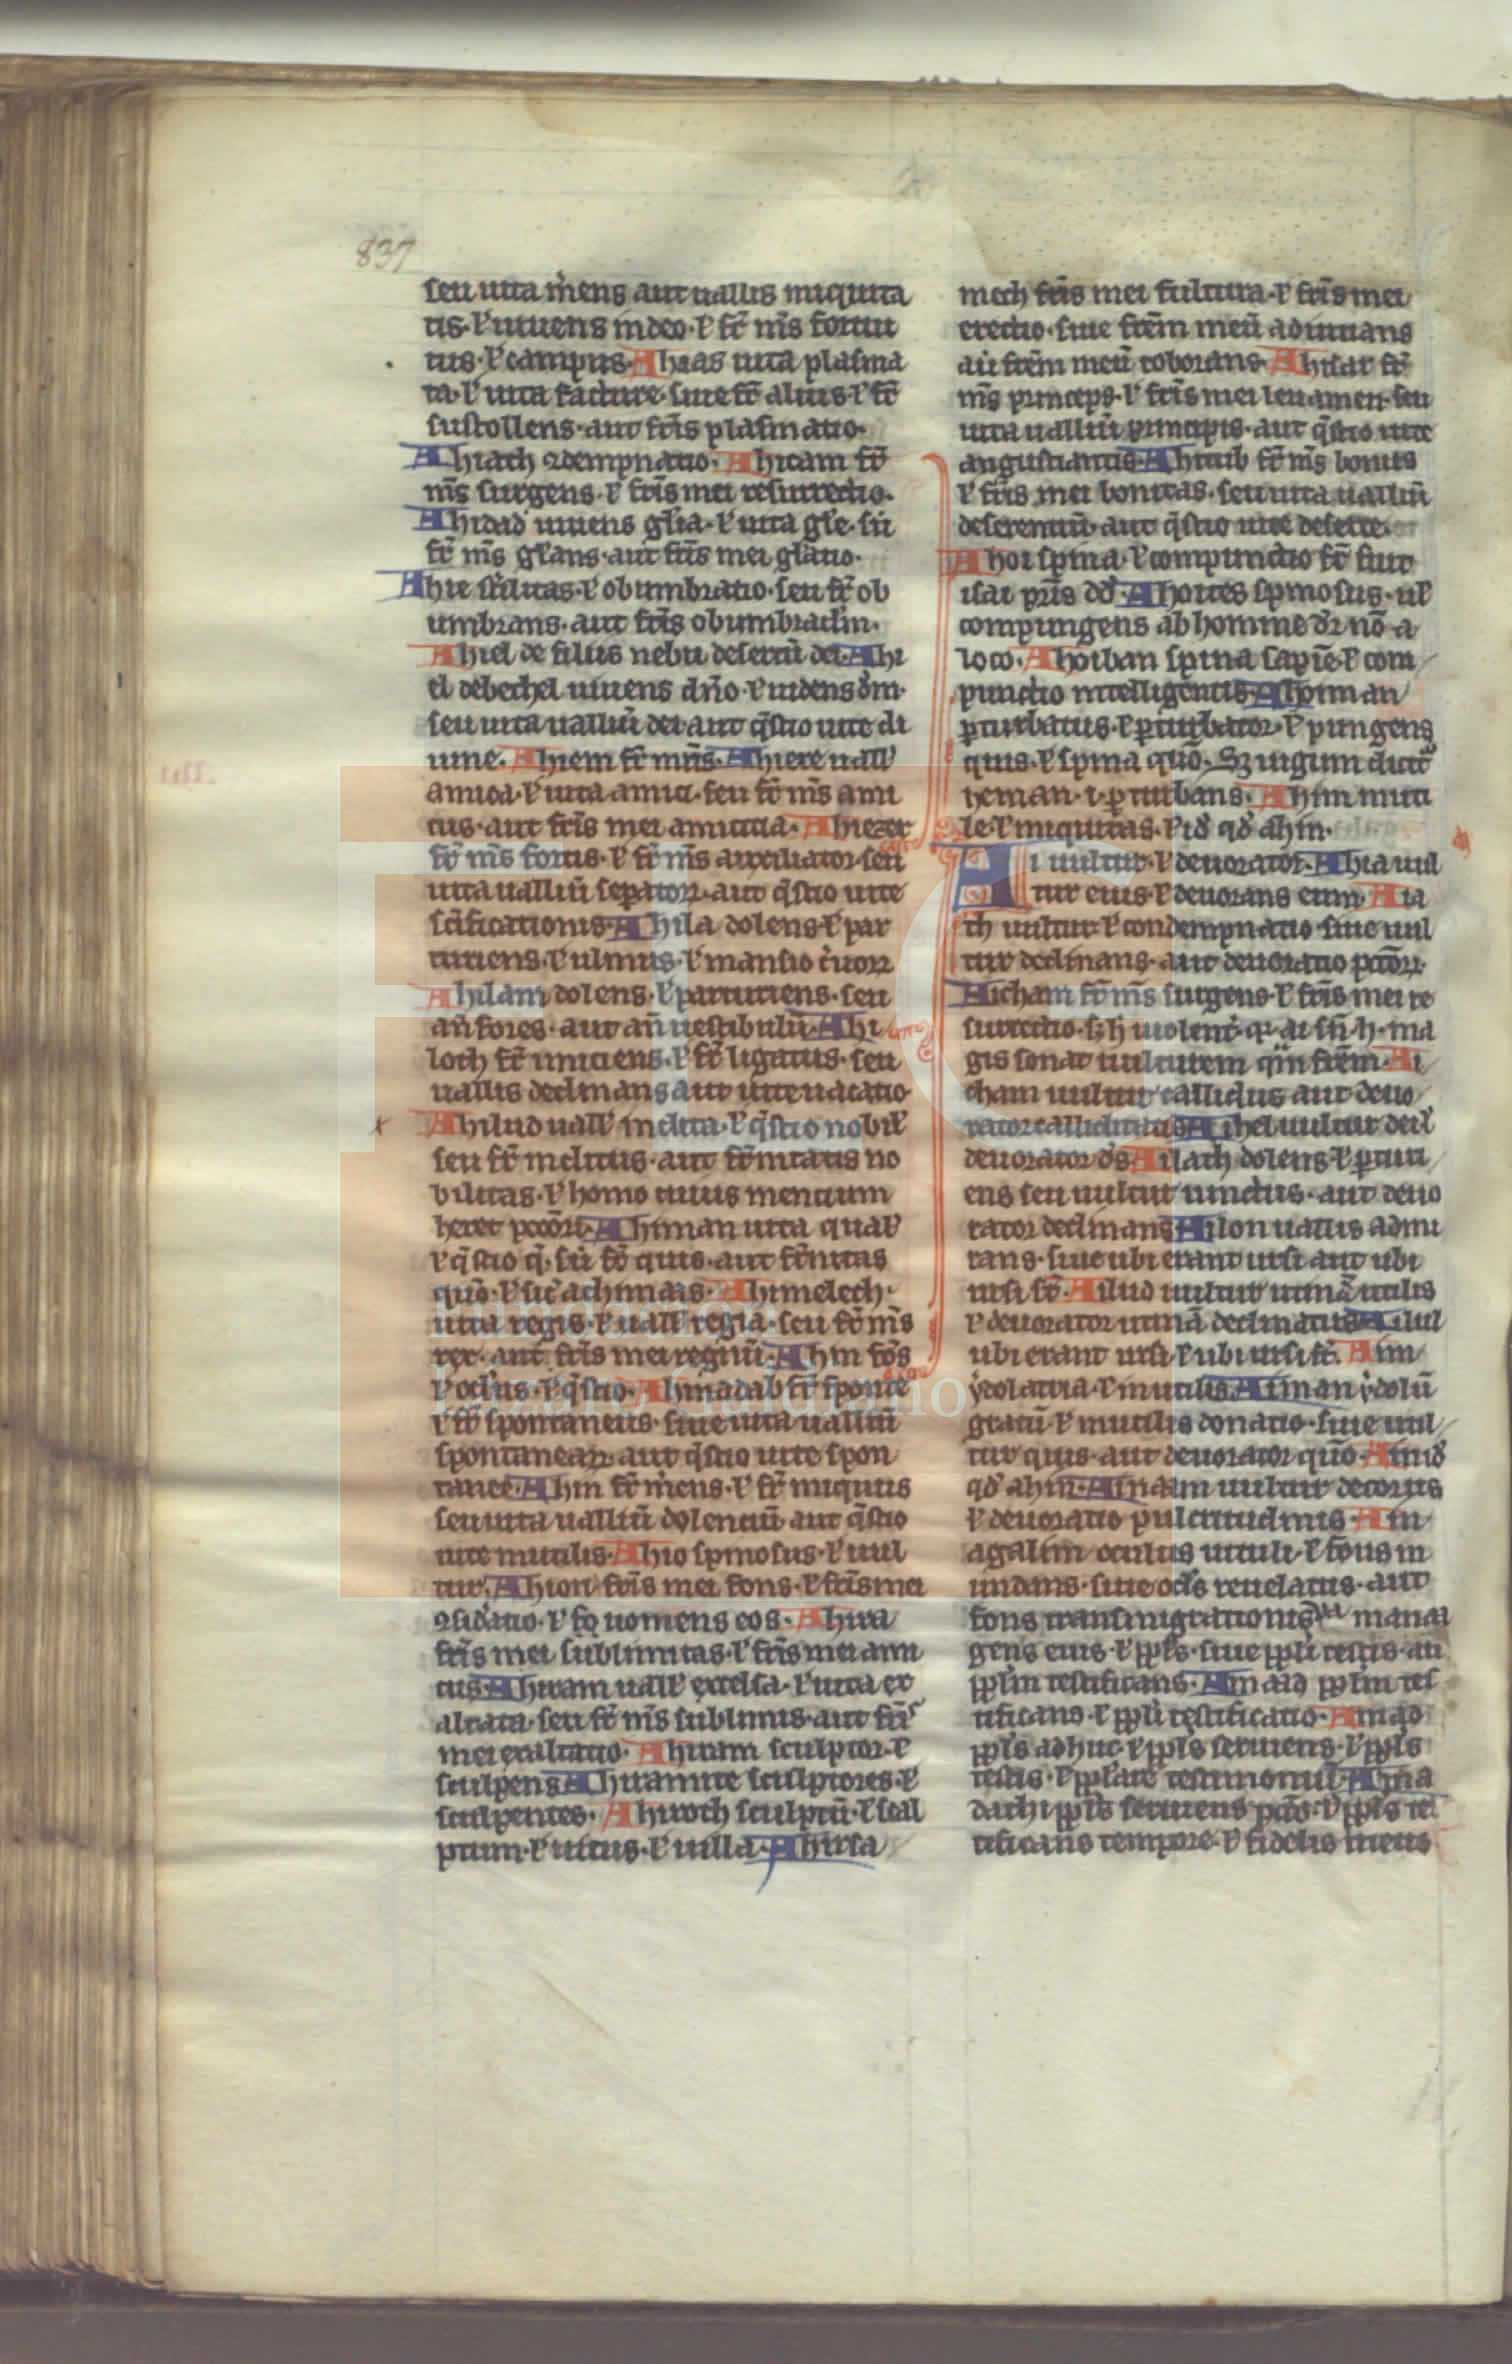 837
seu uita m̾ens aut uallis iniquita
tis. ł uiuens in deo. ł fr̄ m̄s fortitu
tus. ł campus. Ahias uita plasma
ta. ł uita facture. siue fr̄ alius. ł fr̄
sustollens. aut fr̄is plasmatio.
Ahiath ꝯdempnatio. Ahicam fr̄
m̄s surgens. ł fr̄is mei resurrectio.
Ahidad uiuens gl̄ia. ł uita gl̄e. siū
fr̄ m̄s gl̄ans. aut fr̄is mei gl̄atio.
Ahie ſterilitas. ł obumbratio. seu fr̄ ob
umbrans. aut fr̄is obumbraclm̄.
Ahiel de filius nebu desertū dei. Ahi
el debethel uiuens dn̄o. ł uidens dm̄.
seu uita ualliū dei aut q̄stio uite di
uine. Ahiem fr̄ mn̄s. Ahiere uall'
amica. ł uita amici. seu fr̄ m̄s ami
cus. aut fr̄is mei amicitia. Ahiezer
fr̄ m̄s fortis. ł fr̄ m̄s auxiliator seu
uita ualliū sepatorꝝ. aut q̄stio uite
scificationis. Ahila dolens. ł par
turiens. ł ulmus. ł mansio
Ahilam dolens. ł parturiens. seu
an̄ fores. aut an̄ uestibulū. Ahi
loch fr̄ iniciens. ł fr̄ ligatus. seu
uallis declinans aut uite uacatio
x Ahilud uall' inclita. ł q̄stio nobil'
seu fr̄ inclitus. aut fr̄nitatis no
bilitas. ł homo cuius mentium
heret pctōrū. Ahiman uita qual'
ł q̄stio q̄. siū fr̄ quis. aut fr̄nitas
quō. ł sic̄ achimaas. Ahimelech.
uita regis. ł uall' regia. seu fr̄ m̄s
rex. aut fr̄is mei regnū. Ahin fōs
ł oclus. ł q̄stio. Ahinadab fr̄ sponte
ł fr̄ spontaneus. siue uita ualliū
spontanearꝝ. aut q̄stio uite spon
tanee. Ahin fr̄ m̾ens. ł fr̄ iniquus
seu uita ualliū dolentiū aut q̄stio
uite inutilis. Ahio spinosus. ł uul
tur. Ahion fr̄is mei fons. ł fr̄is mei
ꝯsid̾atio. ł fo uomens eos. Ahira
fr̄is mei sublimitas. ł fr̄is mei ami
cus. Ahiram uall' excelsa. ł uita ex
altata. seu fr̄ m̄s sublimis. aut fr̄is
mei exaltatio. Ahiram sculptor. ł
sculpens. Ahiramite sculptores. ł
sculpentes. Ahiroth sculptū. ł scal
ptum. ł uicus. ł uilla. Ahisa
mech fr̄is mei fultura. ł fr̄is mei
erectio. siue fr̄em meū adiuuans
aū fr̄em meū roborans. Ahisar fr̄
m̄s princeps. ł fr̄is mei leuamen. seu
uita ualliū principis. aut q̄stio uite
angustiantis. Ahitub fr̄ m̄s bonus
ł fr̄is mei bonitas. seu uita ualliū
deserentiū. aut q̄stio uite deserte.
Ahoi spina. ł compunctio fr̄ fuit
isai pr̄is dd̄. Ahoites spinosus. ul'
compungens ab homine dr̄ nō a
loco. Ahoiban spina sapiē. ł com
punctio intelligentis. Ahoiman
pturbatus. ł pturbator. ł pungens
quis. ł spina quō. Sꝫ uigum dicit̄
yeman. i. pturbans. Ahim inuti
le. ł iniquitas. ł id̾ qd̾ ahin.
Ai uultur. ł deuorator. Ahia uul
tur eius. ł deuorans eum. Aia
th uultur. ł condempnatio siue uul
tur declinans. aut deuoratio pctōrꝝ.
Aicham fr̄ m̄s surgens. ł fr̄is mei re
surrectio.
gis sonat uulturem qm̄ fr̄em. Ai
cham uultur callidus aut deuo
rator calliditatis. Aihel uultur dei. ł
deuorator ds̄. Ailath dolens. ł parturi
ens seu uultur unctus. aut deuo
rator declinans. Ailon uallis admi
rans. siue ubi erant ursi aut ubi
ursi st̄. Ailud uultur utinā utilis
ł deuorator utinā declinatus. Ailul
ubi erant ursi. ł ubi ursi st̄. Aim
ydolatria. ł inutilis. Aiman ydolū
gratū. ł inutilis donatio. siue uul
tur quis. aut deuorator quō. Ain id̾
qd̾ ahin. Ainaam uultur decorus
ł deuoratio pulcritudinis. Ain
agalim oculus uituli. ł fons in
undans. siue ocl̄s reuelatus. aut
fons transmigrationis. manda
gens eius. ł ppl̄s. siue ppl̄i testis. au
ppl̄m testificans. Amaad ppl̄m tes
tificans. ł ppl̄i testificatio. Amad
ppl̄s adhuc. ł ppl̄s seruiens. ł ppl̄s
testis. ł testimoniū. Ama
dathi ppl̄s seruiens ł ppl̄s te
tificans tempore. ł fidelis meus